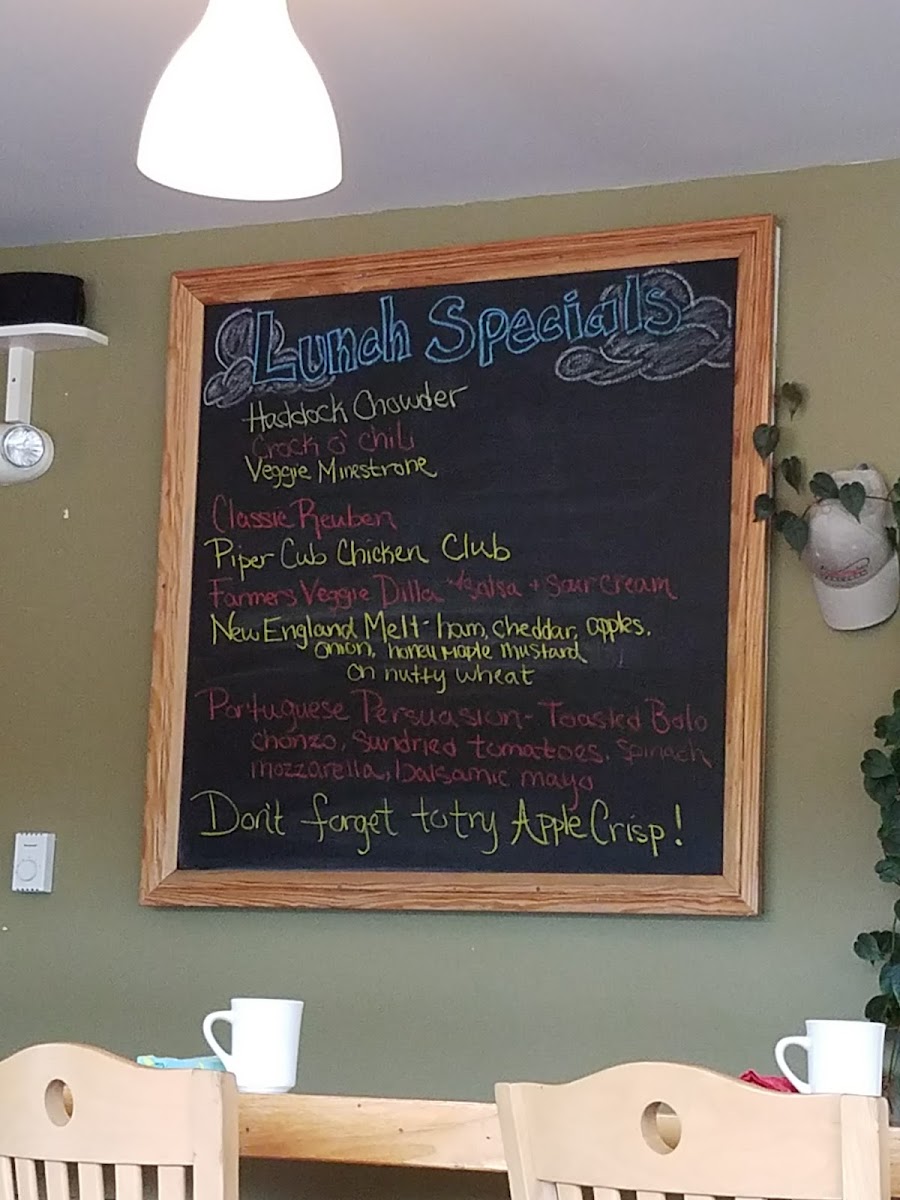 Lunch Specials
Haddock Chowder
Crock o' chili
Veggie Minestrone
Classic Reuben
Piper Cub Chicken Club
Farmers Veggie Dilla w/ salsa + sour cream
New England Melt - ham, cheddar, apples,
onion, honey maple mustard
on nutty wheat
Portuguese Persuasion - Toasted Bolo
chorizo, sundried tomatoes, spinach
mozzarella, balsamic mayo
Don't forget to try Apple Crisp!